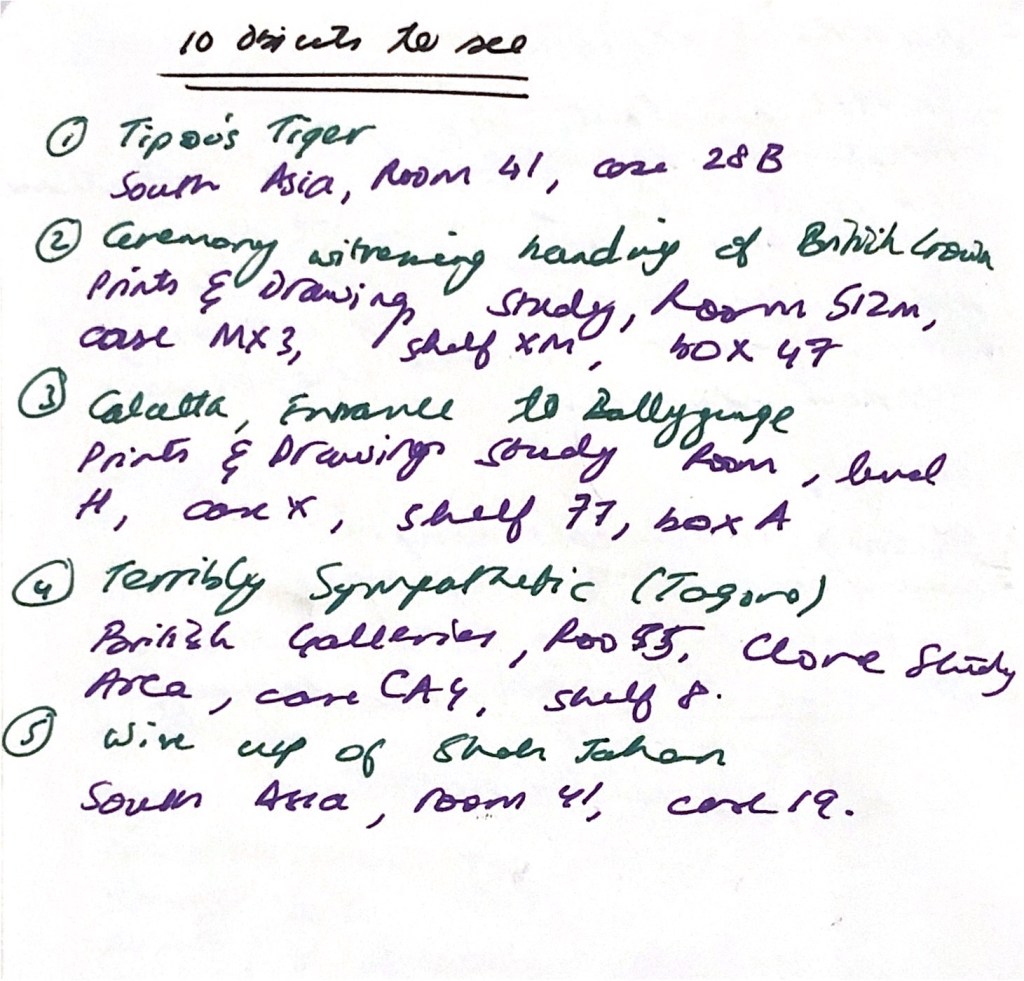 10 objects to see
① Tipoo's Tiger
South Asia, Room 41, case 28B
② Ceremony witnessing handing of British Crown
Prints & Drawings Study, Room 512m,
case MX3, shelf XM, box 47
③ Calcutta, Entrance to Ballygunge
Prints & Drawings Study Room, level
H, case X, shelf 77, box A
④ Terribly Sympathetic (Tagore)
British Galleries, Roo 55, Clore Study
Area, case CA4, shelf 8.
⑤ Wine cup of Shah Jahan
South Asia, room 41, case 19.